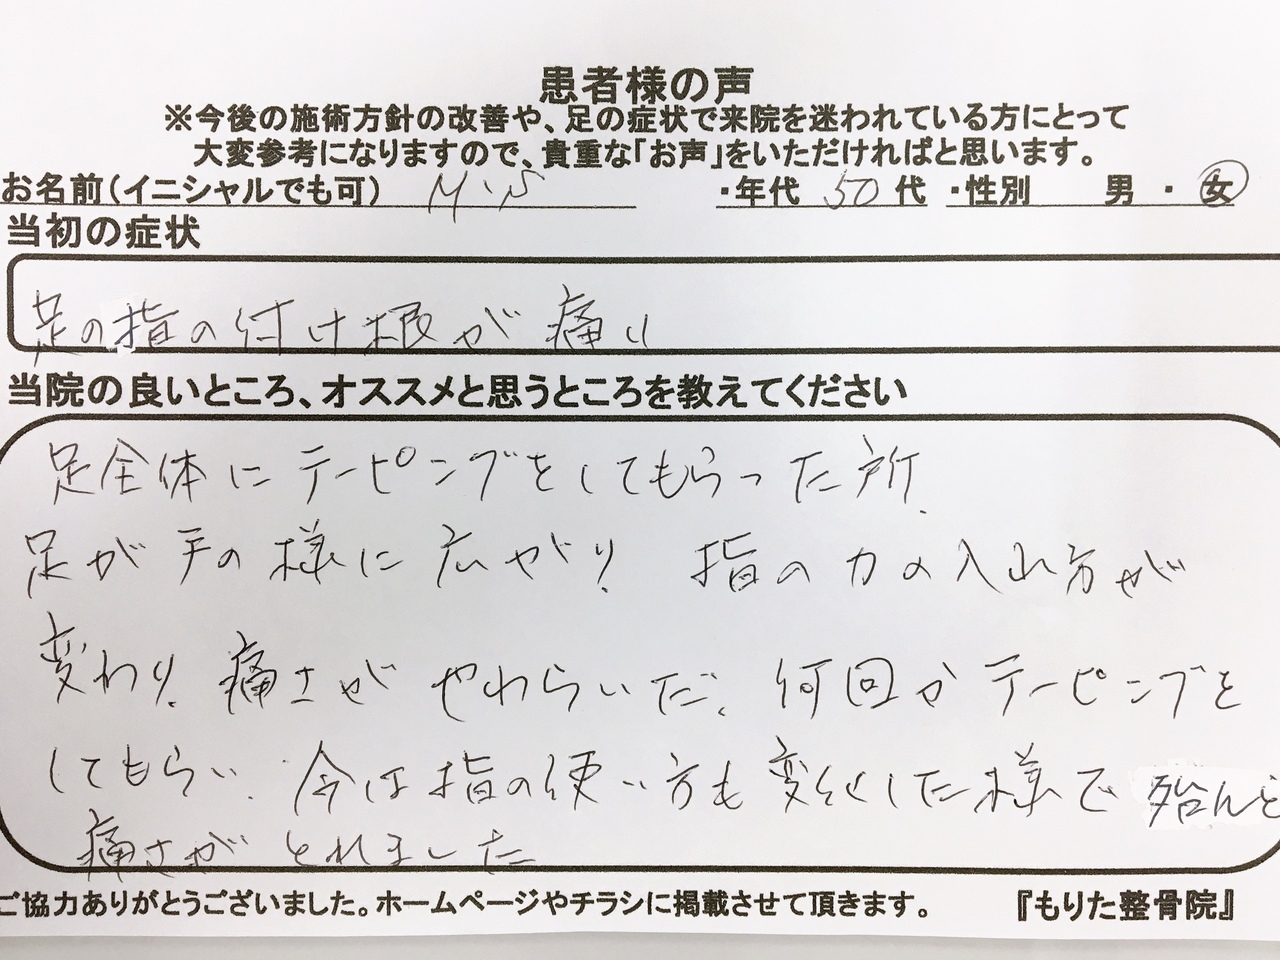 患者様の声
※今後の施術方針の改善や、足の症状で来院を迷われている方にとって
大変参考になりますので、貴重な「お声」をいただければと思います。
お名前(イニシャルでも可) M・S ・年代 50 代 ・性別 男 ・ 女
当初の症状
足の指の付け根が痛い
当院の良いところ、オススメと思うところを教えてください
足全体にテーピングをしてもらった所、
足が手の様に広がり、指の力の入れ方が
変わり、痛さがやわらいだ。何回かテーピングを
してもらい、今は指の使い方も変化した様で殆んど
痛さがとれました
ご協力ありがとうございました。ホームページやチラシに掲載させて頂きます。 『もりた整骨院』